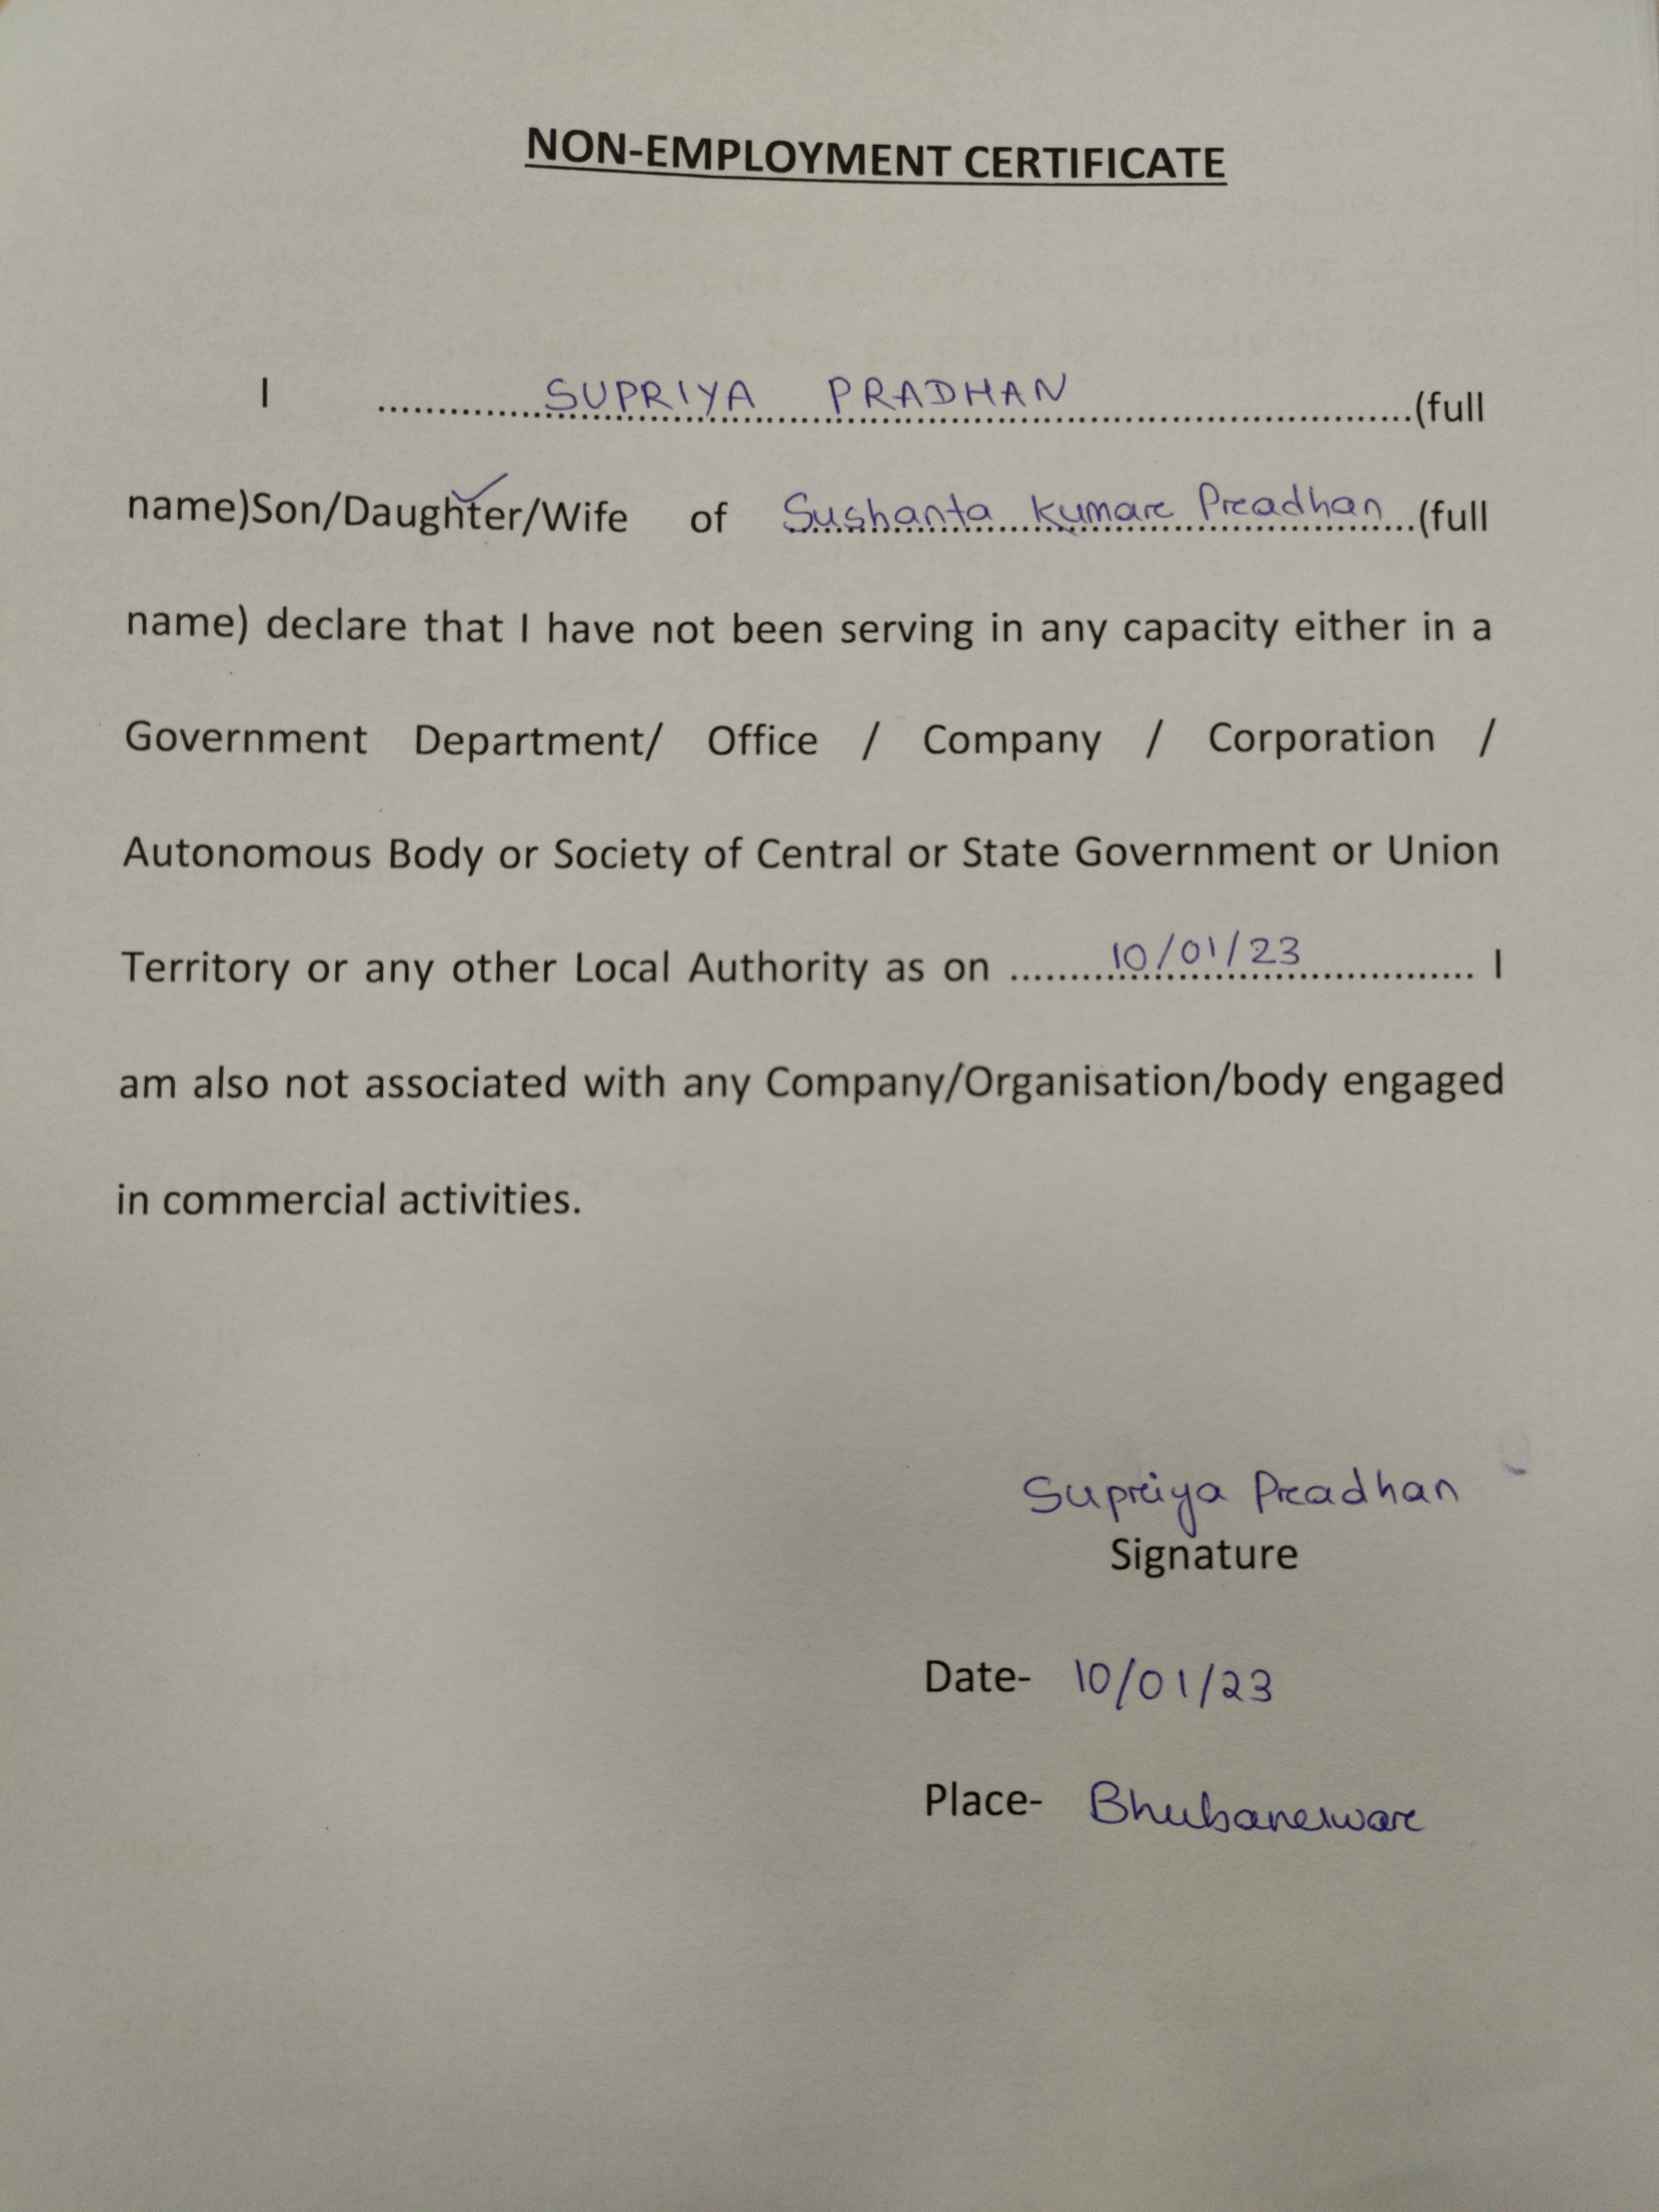 NON-EMPLOYMENT CERTIFICATE
I ......SUPRIYA PRADHAN......(full
name)Son/Daughter/Wife of Sushanta Kumar Pradhan...(full
name) declare that I have not been serving in any capacity either in a
Government Department/ Office / Company / Corporation /
Autonomous Body or Society of Central or State Government or Union
Territory or any other Local Authority as on ......10/01/23...... I
am also not associated with any Company/Organisation/body engaged
in commercial activities.
Supriya Pradhan
Signature
Date- 10/01/23
Place- Bhubaneswar